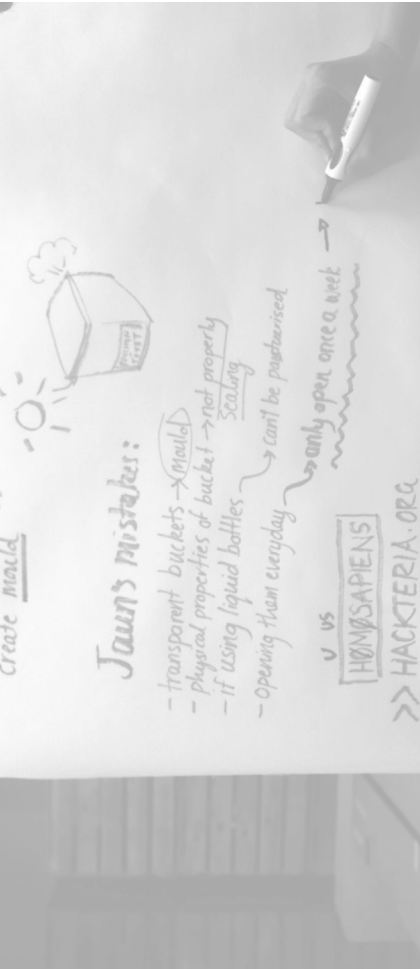 create mould
Jaun's mistakes:
- transparent buckets → mould
- Physical properties of bucket → not properly
sealing
- if using liquid bottles → can't be pasturised
- opening them everyday → only open once a week →
vs
HOMOSAPIENS
>> HACKTERIA.ORG